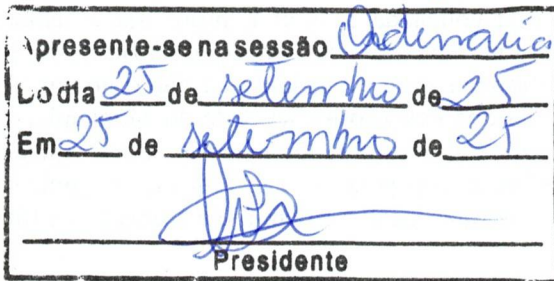 Apresente-se na sessão Ordinaria
Do dia 25 de setembro de 25
Em 25 de setembro de 25
Presidente